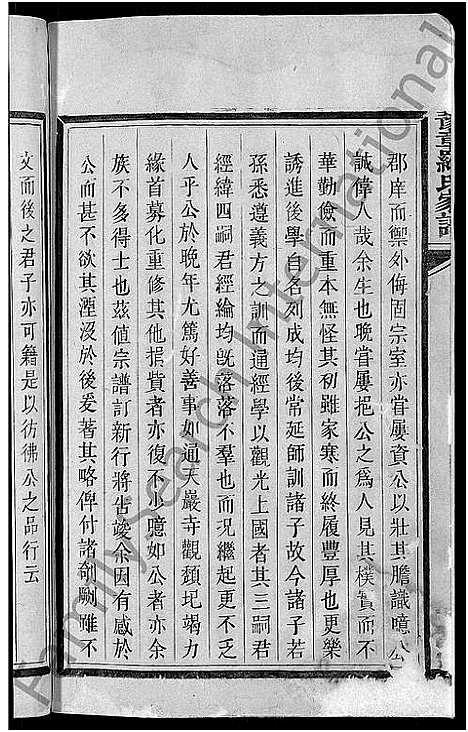 豫章羅氏家譜
郡庠而禦外侮固宗室亦嘗屢資公以壯其膽識噫公
誠偉人哉余生也晚嘗屢挹公之為人見其樸實而不
華勤儉而重本無怪其初雖家寒而終履豐厚也更樂
誘進後學自名列成均後常延師訓諸子故今諸子若
孫悉遵義方之訓而通經學以觀光上國者其三嗣君
經緯四嗣君經綸均旣落落不羣也而況繼起更不乏
人乎公於晚年尤篤好善事如通天巖寺觀頹圯竭力
緣首募化重修其他捐貲者亦復不少噫如公者亦余
族不多得士也茲值宗譜訂新行將告竣余因有感於
公而甚不欲其湮沒於後爰著其略俾付諸剞劂雖不
文而後之君子亦可籍是以彷彿公之品行云
FamilySearch International